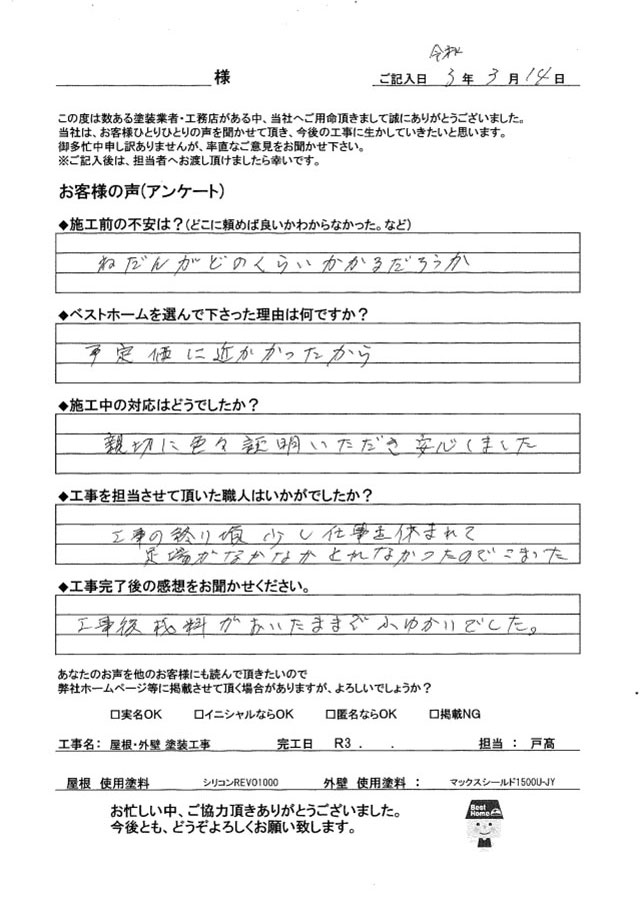 令和
様
ご記入日 3年3月14日
この度は数ある塗装業者・工務店がある中、当社へご用命頂きまして誠にありがとうございました。
当社は、お客様ひとりひとりの声を聞かせて頂き、今後の工事に生かしていきたいと思います。
御多忙中申し訳ありませんが、率直なご意見をお聞かせ下さい。
※ご記入後は、担当者へお渡し頂けましたら幸いです。
お客様の声(アンケート)
◆施工前の不安は?(どこに頼めば良いかわからなかった。など)
ねだんがどのくらいかかるだろうか
◆ベストホームを選んで下さった理由は何ですか?
予定価に近かかったから
◆施工中の対応はどうでしたか?
親切に色々説明いただき安心しました
◆工事を担当させて頂いた職人はいかがでしたか?
工事の終り頃 少し仕事を休まれて
足場がなかなかとれなかったのでこまった
◆工事完了後の感想をお聞かせください。
工事後 材料がおいたままでふゆかいでした。
あなたのお声を他のお客様にも読んで頂きたいので
弊社ホームページ等に掲載させて頂く場合がありますが、よろしいでしょうか?
□実名OK □イニシャルならOK □匿名ならOK □掲載NG
工事名: 屋根・外壁 塗装工事 完工日 R3 . . 担当 : 戸髙
屋根 使用塗料 シリコンREVO1000 外壁 使用塗料 : マックスシールド1500U-JY
お忙しい中、ご協力頂きありがとうございました。
今後とも、どうぞよろしくお願い致します。
Best
Home